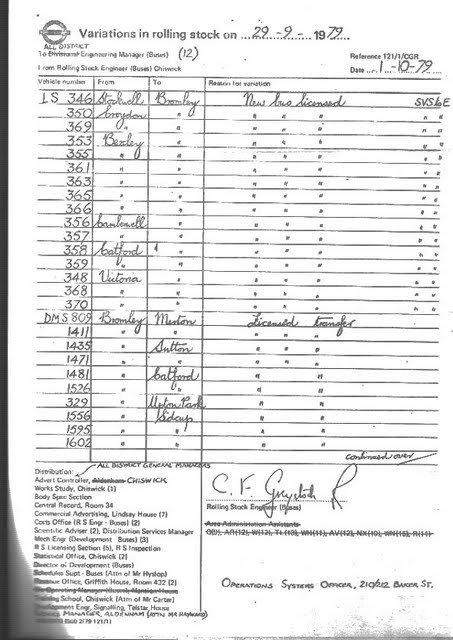 Variations in rolling stock on 29-9- 1979
ALL DISTRICT
To Divisional Engineering Manager (Buses) (12)
Reference 121/1/CGR
From Rolling Stock Engineer (Buses) Chiswick
Date 1-10-79
Vehicle number From To Reason for variation
LS 346 Stockwell Bromley New bus licensed SVS6E
350 Croydon " " " " " "
369 " " " " " " "
353 Bexley " " " " " "
355 " " " " " " "
361 " " " " " " "
363 " " " " " " "
365 " " " " " " "
366 " " " " " " "
356 Camberwell " " " " " "
357 " " " " " " "
358 Catford " " " " " "
359 " " " " " " "
348 Victoria " " " " " "
368 " " " " " " "
370 " " " " " " "
DMS 809 Bromley Merton Licensed transfer
1411 " " " "
1435 " Sutton " "
1471 " " " "
1481 " Catford " "
1526 " " " "
329 " Upton Park " "
1556 " Sidcup " "
1595 " " " "
1602 " " " "
continued over
Distribution: ALL DISTRICT GENERAL MANAGERS
Advert Controller, Aldenham CHISWICK
Works Study, Chiswick (1)
Body Spec Section
Central Record, Room 34
Commercial Advertising, Lindsay House (7)
Costs Office (R S Engr - Buses) (2)
Scientific Adviser (2), Distribution Services Manager
Mech Engr (Development Buses) (3)
R S Licensing Section (5), R S Inspection
Statistical Office, Chiswick (2)
Director of Development (Buses)
Schedules Supt - Buses (Attn of Mr Hyslop)
Revenue Office, Griffith House, Room 432 (2)
Operating Manager (Buses), Mansion House
Training School, Chiswick (Attn of Mr Carter)
Development Engr, Signalling, Telstar House
MANAGER, ALDENHAM (ATTN MR HAYWARD)
1500 2/79 121/1
C. F.
Rolling Stock Engineer (Buses)
Area Administration Assistants
OPERATIONS SYSTEMS OFFICER, 210/212 BAKER ST.